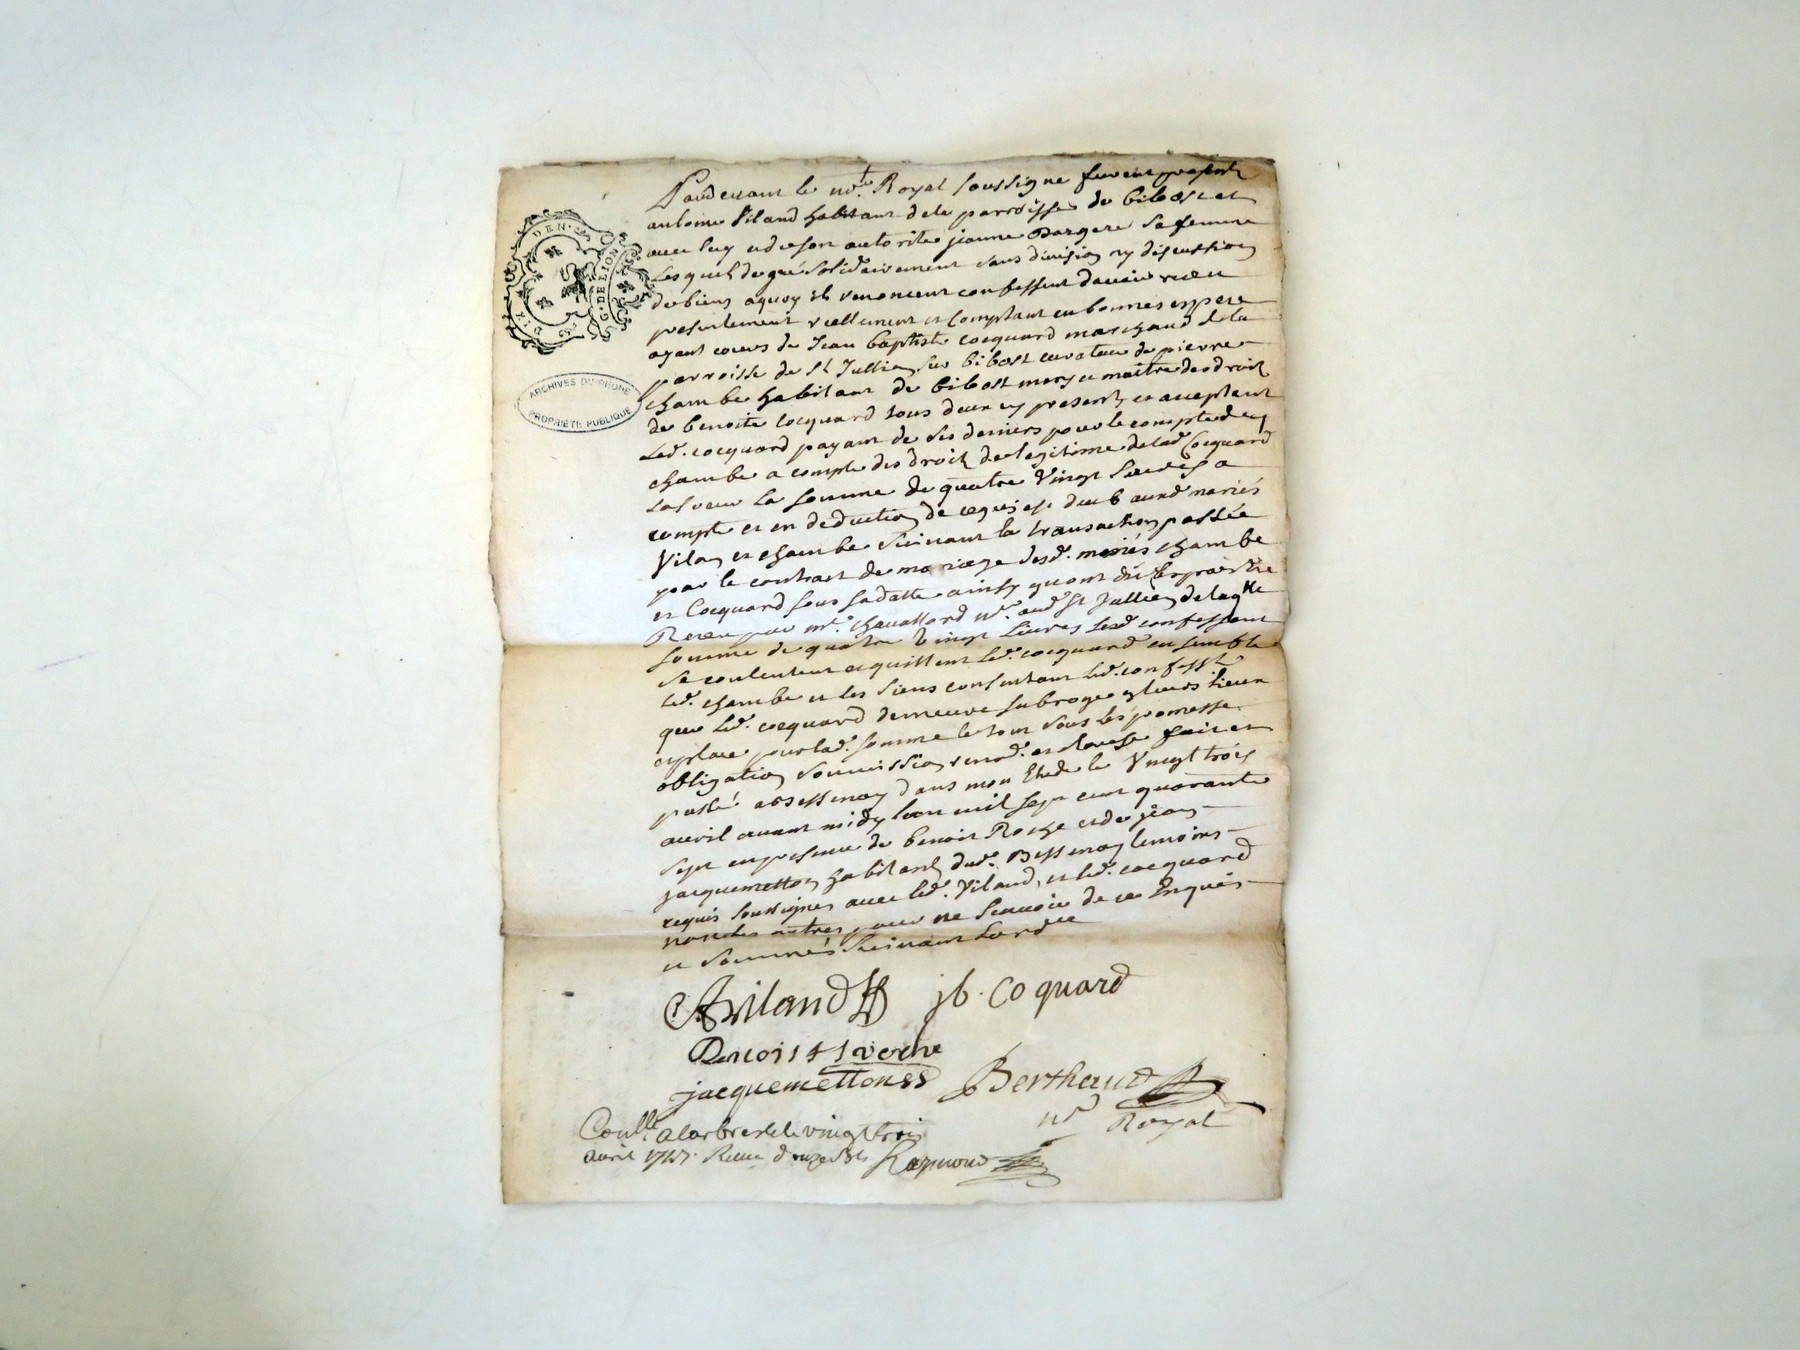 DIX DEN.
G. DE LION
ARCHIVES DU RHONE
PROPRIÉTÉ PUBLIQUE
Pardevant le no.re Royal soussigne furent presents
antoine Viland habitant de la parroisse de bibost et
avec luy et de son autorite jeanne Dargere sa femme
Lesquels de gré solidairement sans division ny discussion
de biens a quoy ils renoncent confessent d'avoir receu
presentement reellement et comptant en bonnes especes
ayant cours de Jean baptiste cocquard marchand de la
parroisse de st Jullien sur bibost curateur de pierre
chambe habitant de bibost mary et maitre des droits
de benoite Cocquard tous deux icy presents et acceptant
Led. cocquard payant de ses deniers pour le compte dud
chambe a compte des droits de legitime de lad. Cocquard
sa soeur La somme de quatre Vingt Livres a
compte et en deduction de ce qui est deub aud. mariés
Vilan et chambe suivant la transaction passée
par le contract de mariage desd. mariés chambe
et Cocquard sous sa datte ainsy qu'ont dit les parties
Receu par me. chavassord no.re aud. St Jullien de laq.lle
somme de quatre Vingt Livres Lesd. confessant
se contentent et quittent Led. cocquard ensemble
Led. chambe et les siens consentant Led. confess.t
que Led. cocquard demeure subroge en leurs lieu
et place pour lad. somme le tout sous les promesse
obligation soumission renon. et clause fait et
passé a Bessenay dans mon Etude le Vingt trois
avril avant midy l'an mil sept cent quarante
sept en presence de benoit Roche et de jean
jacquemetton habitants dud. Bessenay temoins
requis soussignes avec led. Viland, et led. cocquard
non les autres pour ne scavoir de ce Enquis
et sommés suivant Lord.ce
A Viland
jb. Coquard
Benoist
jacquemetton
Berthaud
no.re Royal
Coull.e a Larbresle le vingt trois
avril 1747. Receu douze sols Raymond